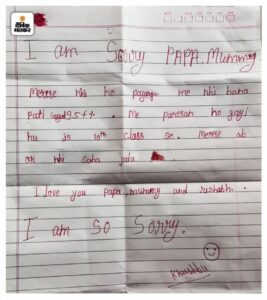 दैनिक भास्कर
I am Sorry PAPA, Mummy
Merese nhi ho payega me nhi bana
Pati 95.+ me paresan ho gayi
hu is 10th class se. Merese ab
or nhi saha jata
I love you papa, mummy and rishabh.
I am so Sorry.
Khushbu